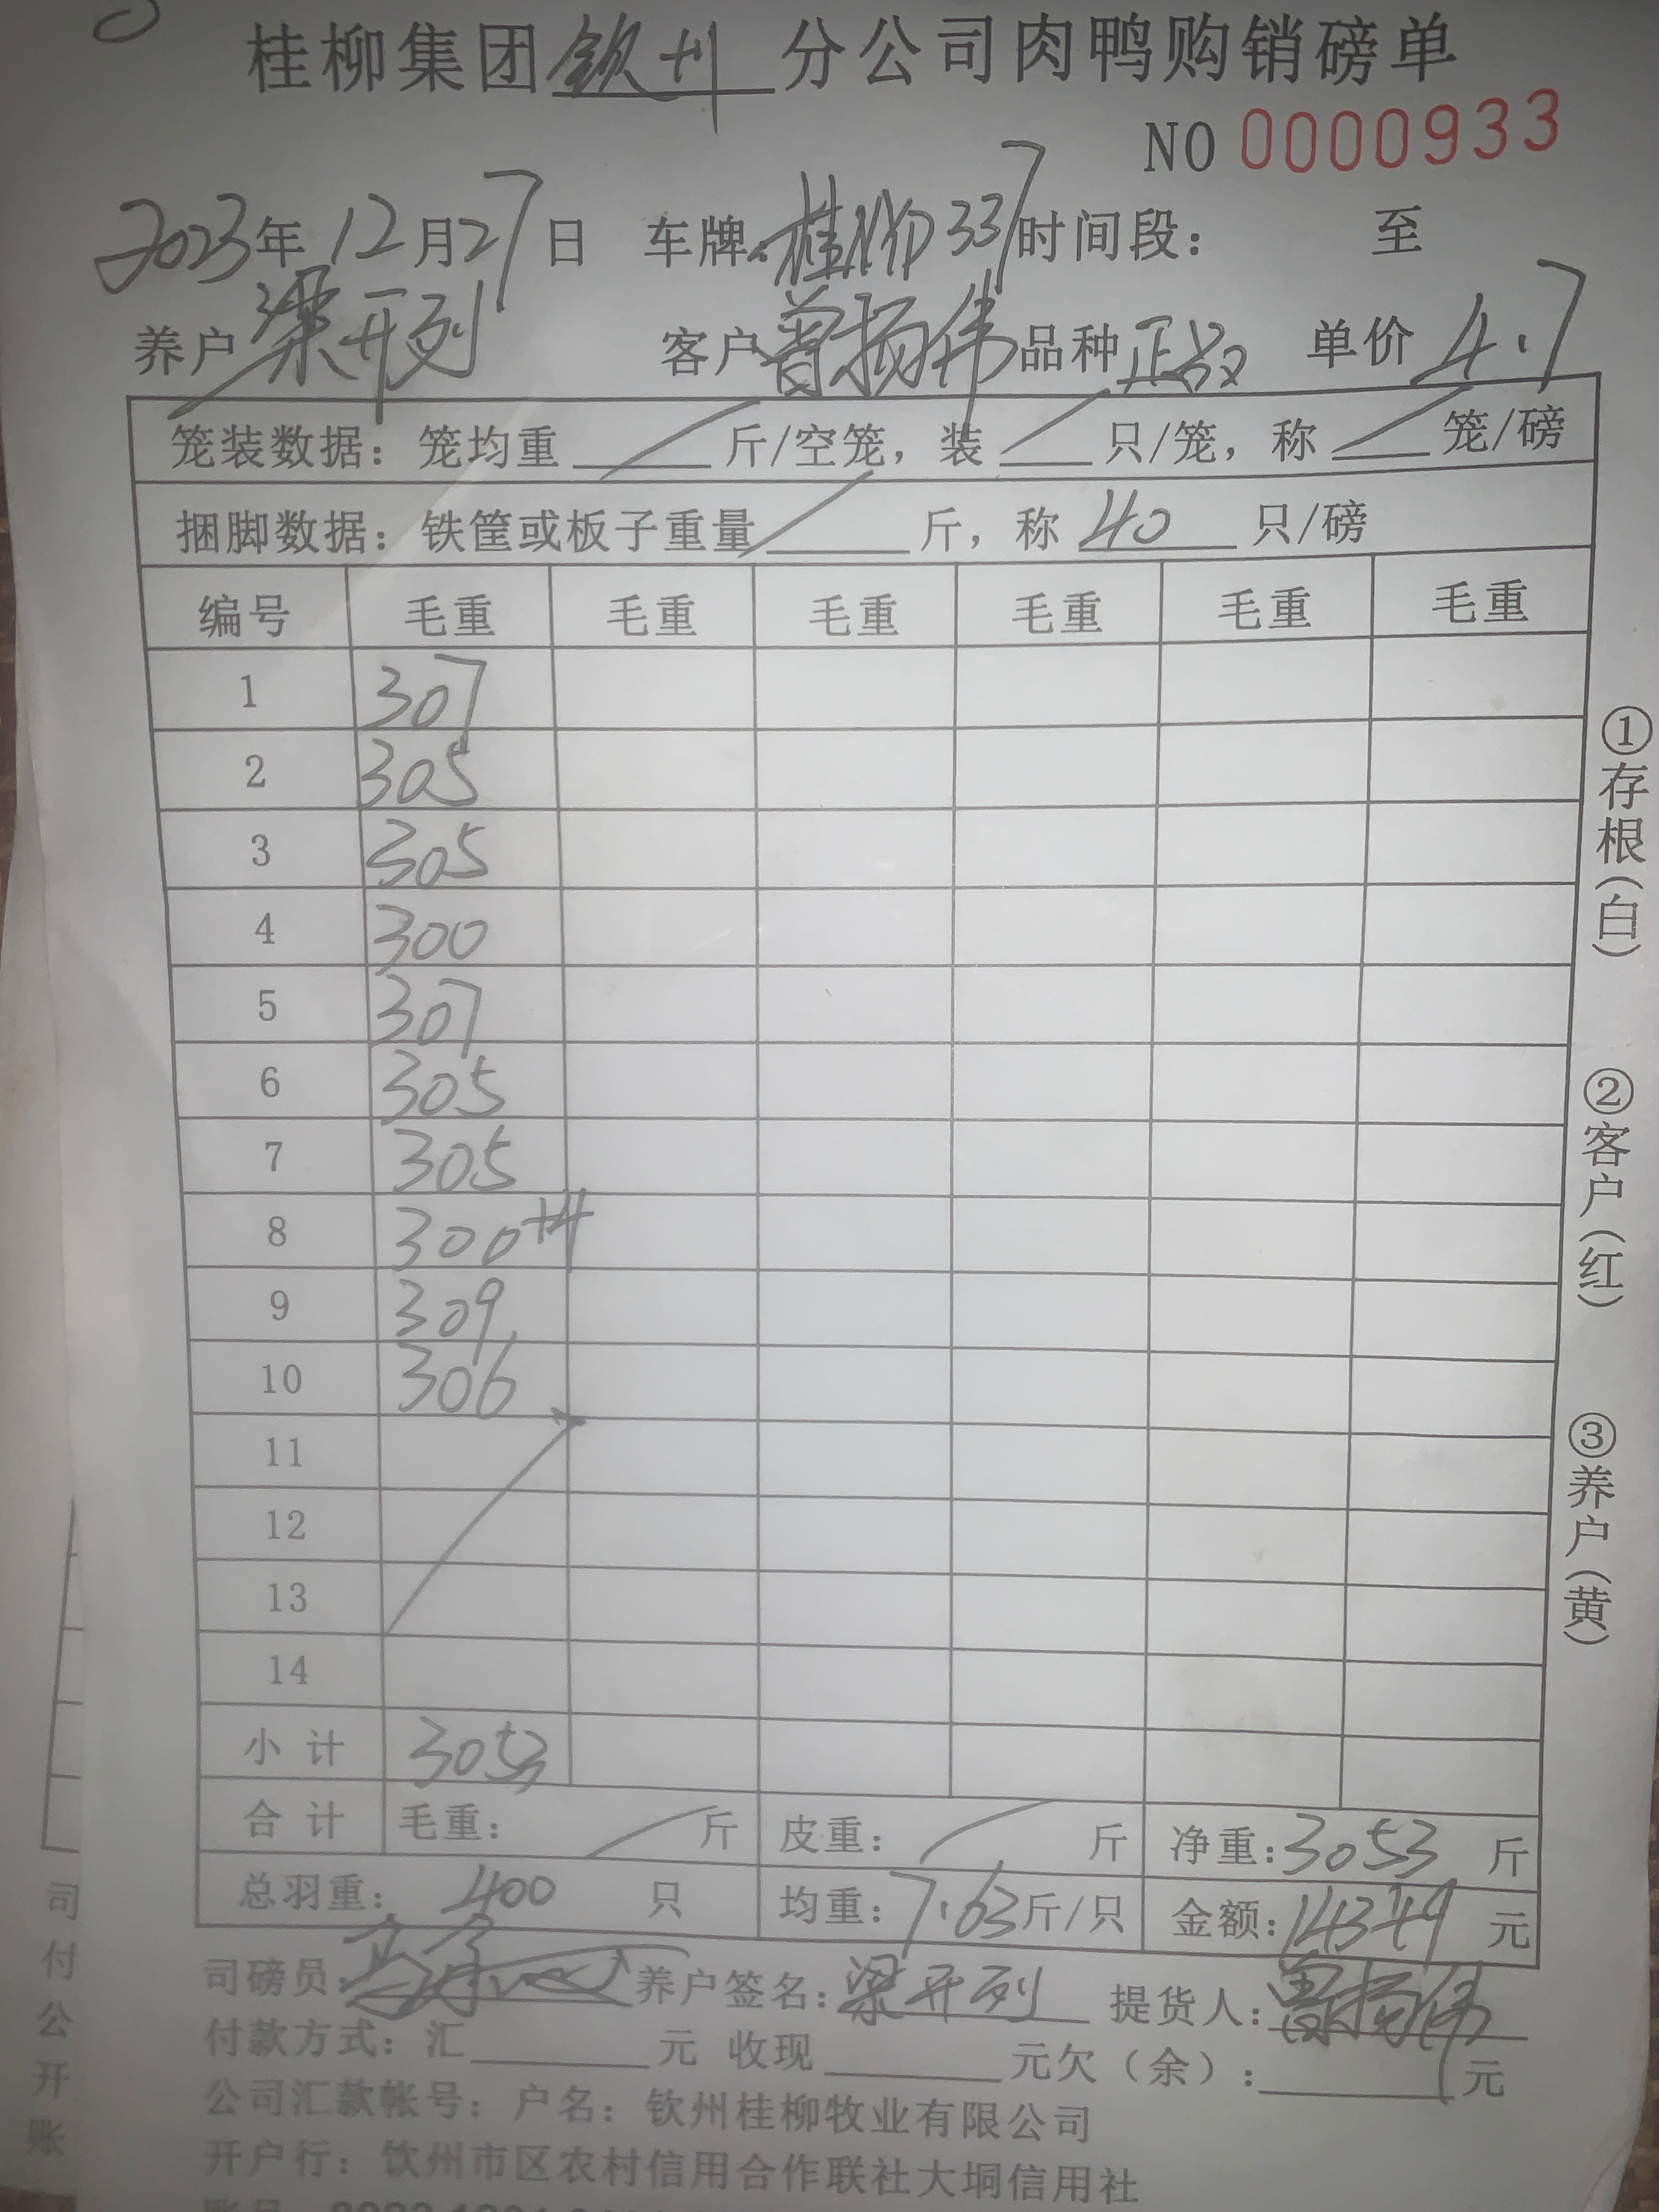 桂柳集团钦州分公司肉鸭购销磅单
NO 0000933
2023年12月27日 车牌:桂柳337时间段: 至
养户梁开列 客户曾扬伟品种正敌 单价4.7
笼装数据:笼均重 斤/空笼,装 只/笼,称 笼/磅
捆脚数据:铁筐或板子重量 斤,称 40 只/磅
编号 毛重 毛重 毛重 毛重 毛重 毛重
1 307
2 305
3 305
4 300
5 307
6 305
7 305
8 300+4
9 309
10 306
11
12
13
14
小计 3053
合计 毛重: 斤 皮重: 斤 净重:3053 斤
总羽重: 400 只 均重:7.63斤/只 金额:14349 元
司磅员: 养户签名:梁开列 提货人:曾扬伟
付款方式:汇 元 收现 元欠(余): 元
公司汇款帐号:户名:钦州桂柳牧业有限公司
开户行:饮州市区农村信用合作联社大垌信用社
①存根(白)
②客户(红)
③养户(黄)
司
付
公
开
账